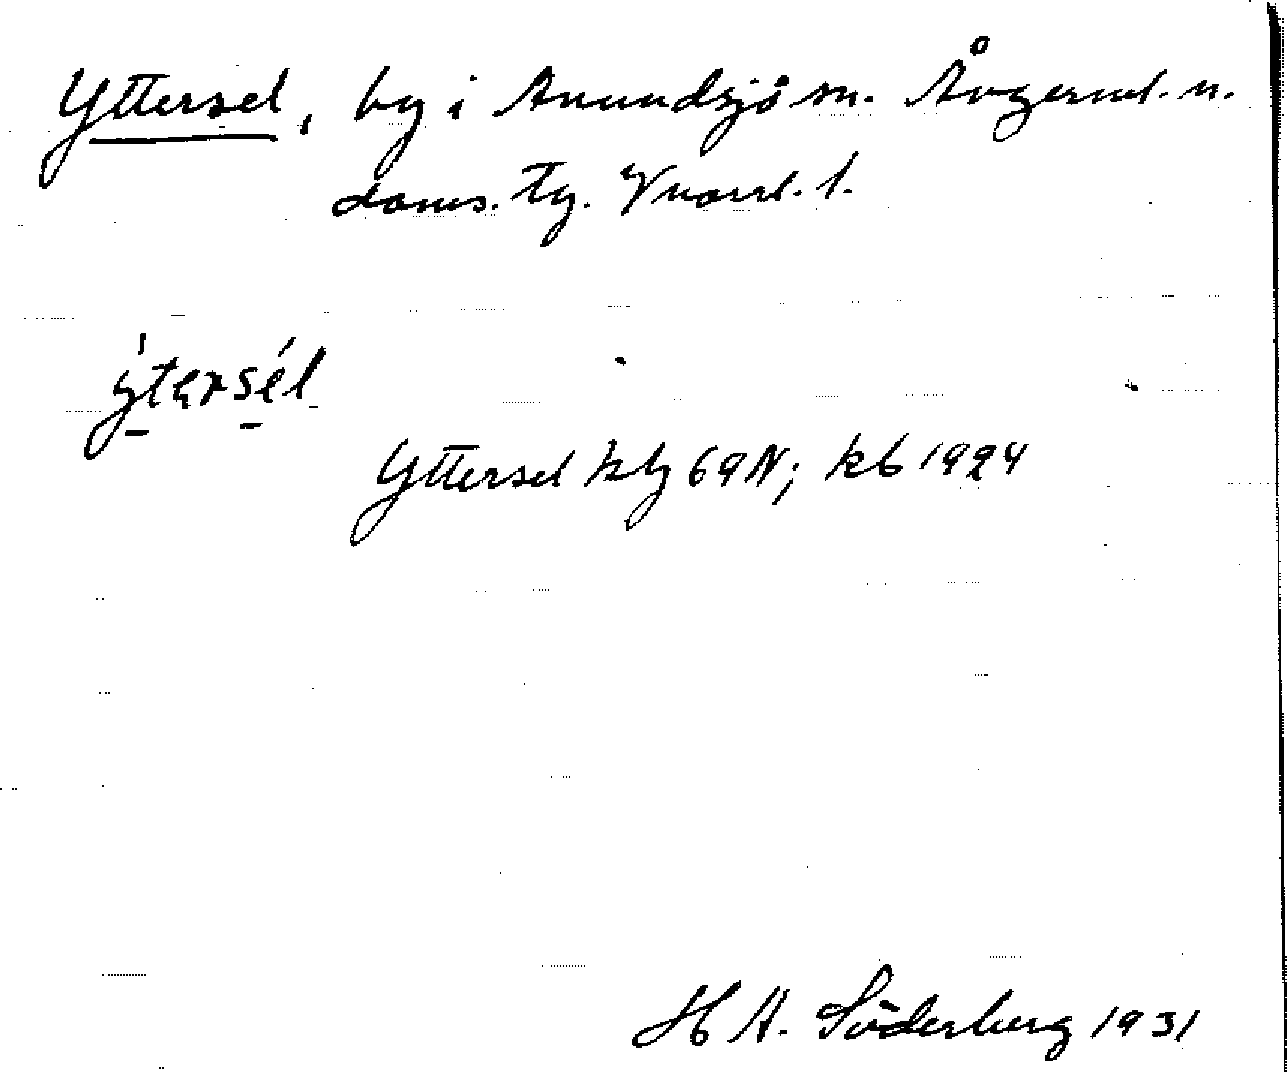 Yttersel, by i Anundsjö sn. Ångerml. n.
doms. Tg. Vnorrl. l.
ýtersél
Yttersel kbg 69N; kb 1924
H A. Söderberg 1931